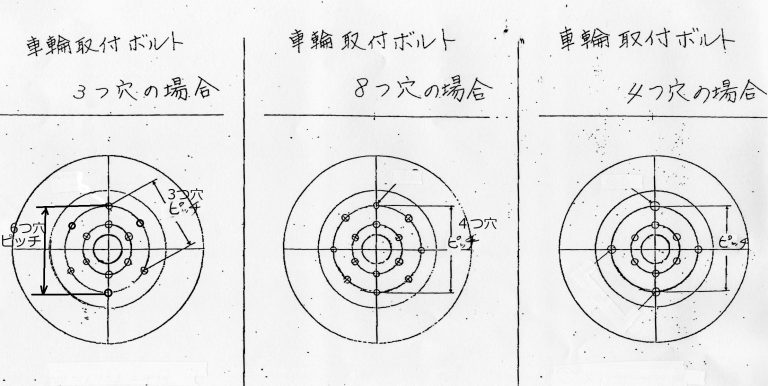 車輪取付ボルト
3つ穴の場合
3つ穴
ピッチ
6つ穴
ピッチ
車輪取付ボルト
8つ穴の場合
4つ穴
ピッチ
車輪取付ボルト
4つ穴の場合
ピッチ